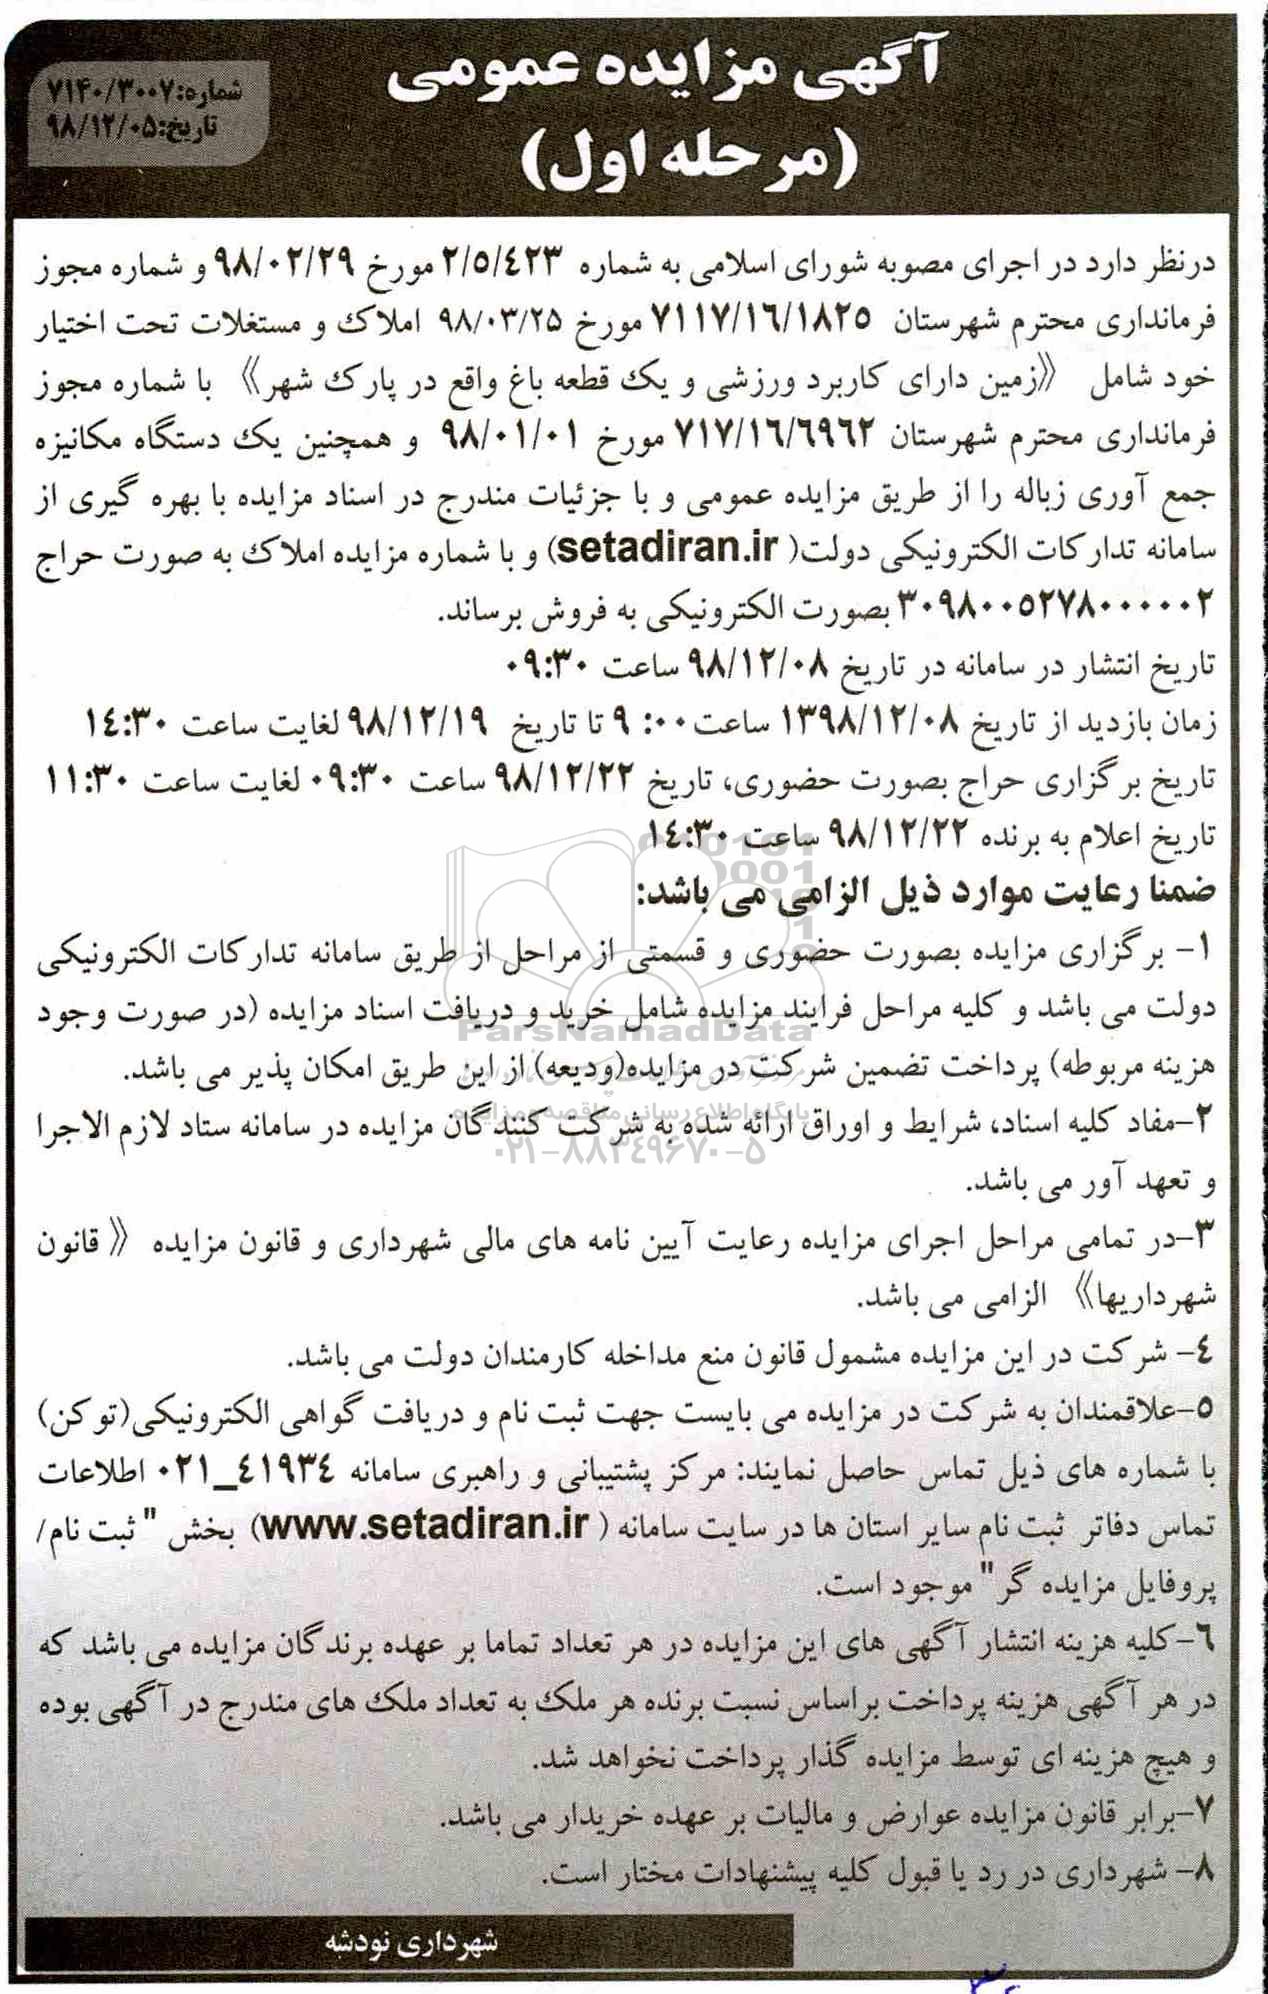 آگهی مزایده عمومی
(مرحله اول)
شماره:۷۱۴۰/۳۰۰۷
تاریخ:۹۸/۱۲/۰۵
درنظر دارد در اجرای مصوبه شورای اسلامی به شماره ۲/۵/٤۲۳ مورخ ۹۸/۰۲/۲۹ و شماره مجوز
فرمانداری محترم شهرستان ۷۱۱۷/۱٦/۱۸۲۵ مورخ ۹۸/۰۳/۲۵ املاک و مستغلات تحت اختیار
خود شامل 《زمین دارای کاربرد ورزشی و یک قطعه باغ واقع در پارک شهر》 با شماره مجوز
فرمانداری محترم شهرستان ۷۱۷/۱٦/٦۹٦۲ مورخ ۹۸/۰۱/۰۱ و همچنین یک دستگاه مکانیزه
جمع آوری زباله را از طریق مزایده عمومی و با جزئیات مندرج در اسناد مزایده با بهره گیری از
سامانه تدارکات الکترونیکی دولت( setadiran.ir) و با شماره مزایده املاک به صورت حراج
۳۰۹۸۰۰۵۲۷۸۰۰۰۰۰۲ بصورت الکترونیکی به فروش برساند.
تاریخ انتشار در سامانه در تاریخ ۹۸/۱۲/۰۸ ساعت ۰۹:۳۰
زمان بازدید از تاریخ ۱۳۹۸/۱۲/۰۸ ساعت ۹:۰۰ تا تاریخ ۹۸/۱۲/۱۹ لغایت ساعت ۱٤:۳۰
تاریخ برگزاری حراج بصورت حضوری، تاریخ ۹۸/۱۲/۲۲ ساعت ۰۹:۳۰ لغایت ساعت ۱۱:۳۰
تاریخ اعلام به برنده ۹۸/۱۲/۲۲ ساعت ۱٤:۳۰
ضمنا رعایت موارد ذیل الزامی می باشد:
۱- برگزاری مزایده بصورت حضوری و قسمتی از مراحل از طریق سامانه تدارکات الکترونیکی
دولت می باشد و کلیه مراحل فرایند مزایده شامل خرید و دریافت اسناد مزایده (در صورت وجود
ParsNamadData
هزینه مربوطه) پرداخت تضمین شرکت در مزایده(ودیعه) از این طریق امکان پذیر می باشد.
پایگاه اطلاع رسانی مناقصه و مزایده
۲-مفاد کلیه اسناد، شرایط و اوراق ارائه شده به شرکت کنندگان مزایده در سامانه ستاد لازم الاجرا
۰۲۱-۸۸۳۴۹۶۷۰-۵
و تعهد آور می باشد.
۳-در تمامی مراحل اجرای مزایده رعایت آیین نامه های مالی شهرداری و قانون مزایده 《قانون
شهرداریها》 الزامی می باشد.
٤- شرکت در این مزایده مشمول قانون منع مداخله کارمندان دولت می باشد.
۵-علاقمندان به شرکت در مزایده می بایست جهت ثبت نام و دریافت گواهی الکترونیکی(توکن)
با شماره های ذیل تماس حاصل نمایند: مرکز پشتیبانی و راهبری سامانه ٤۱۹۳٤_۰۲۱ اطلاعات
تماس دفاتر ثبت نام سایر استان ها در سایت سامانه ( www.setadiran.ir) بخش " ثبت نام/
پروفایل مزایده گر" موجود است.
٦-کلیه هزینه انتشار آگهی های این مزایده در هر تعداد تماما بر عهده برندگان مزایده می باشد که
در هر آگهی هزینه پرداخت براساس نسبت برنده هر ملک به تعداد ملک های مندرج در آگهی بوده
و هیچ هزینه ای توسط مزایده گذار پرداخت نخواهد شد.
۷-برابر قانون مزایده عوارض و مالیات بر عهده خریدار می باشد.
۸- شهرداری در رد یا قبول کلیه پیشنهادات مختار است.
شهرداری نودشه